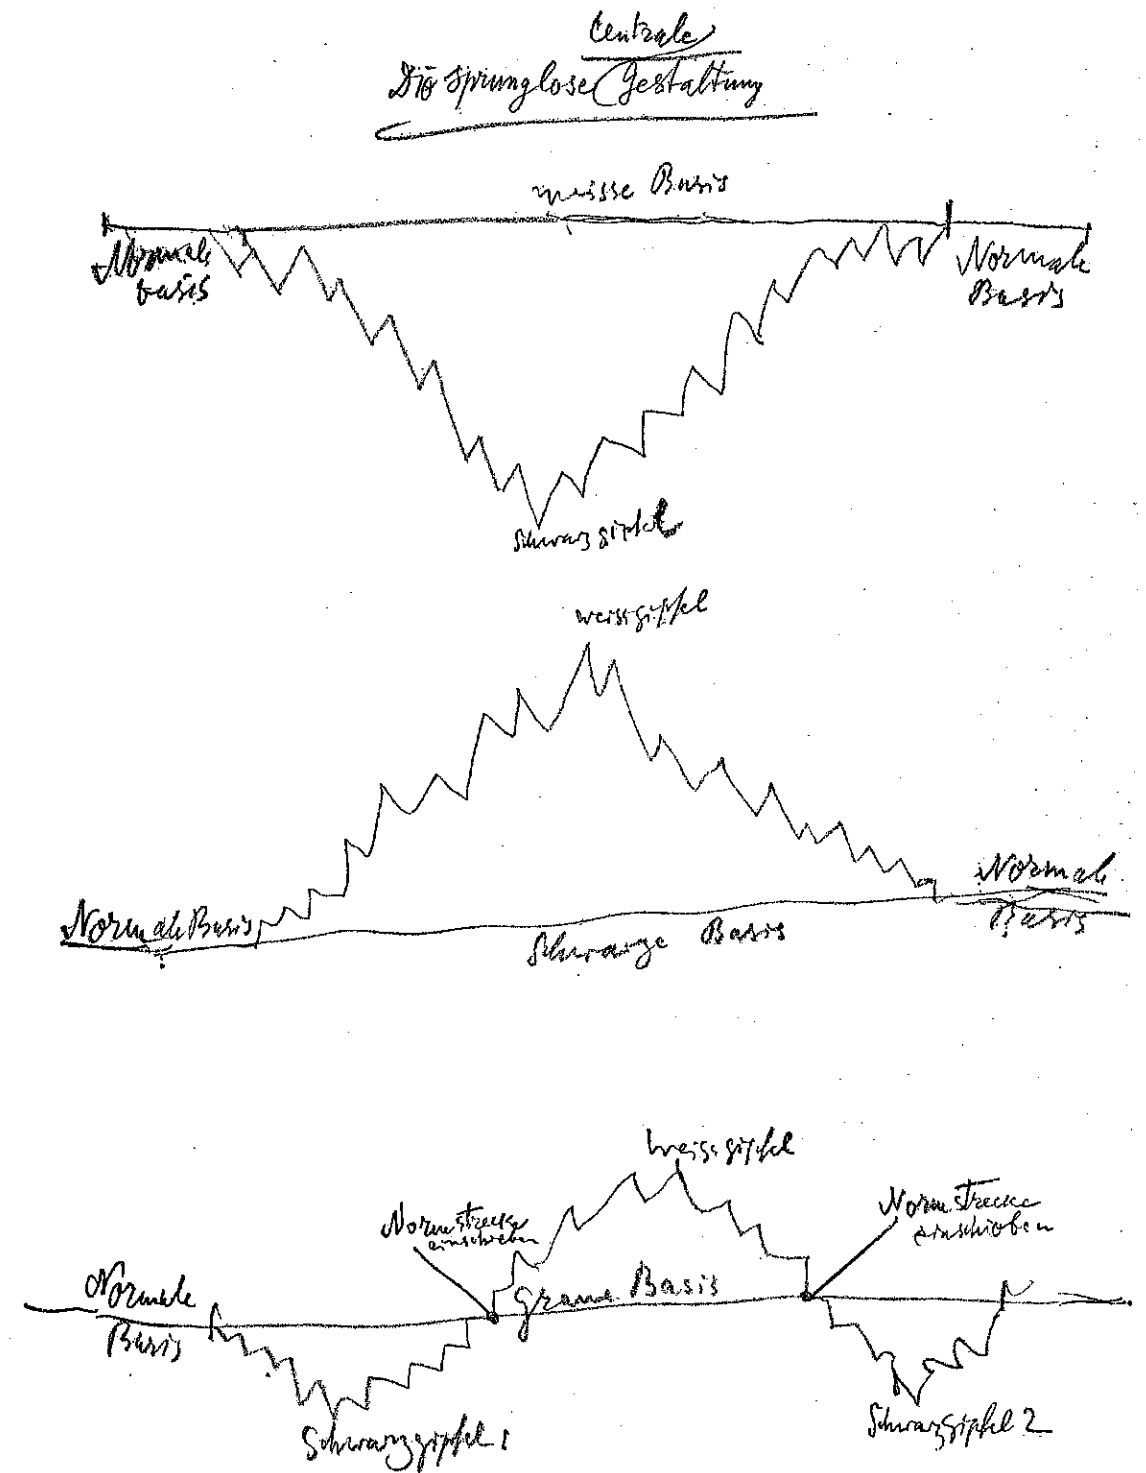 Centrale
Die sprunglose Gestaltung
weisse Basis
Normale
basis
Normale
Basis
Schwarzgipfel
weissgipfel
Normale Basis
Normale
Basis
Schwarze Basis
Weissgipfel
Normstrecke
einschieben
Normstrecke
einschieben
Normale
Basis
Graue Basis
Schwarzgipfel 1
Schwarzgipfel 2